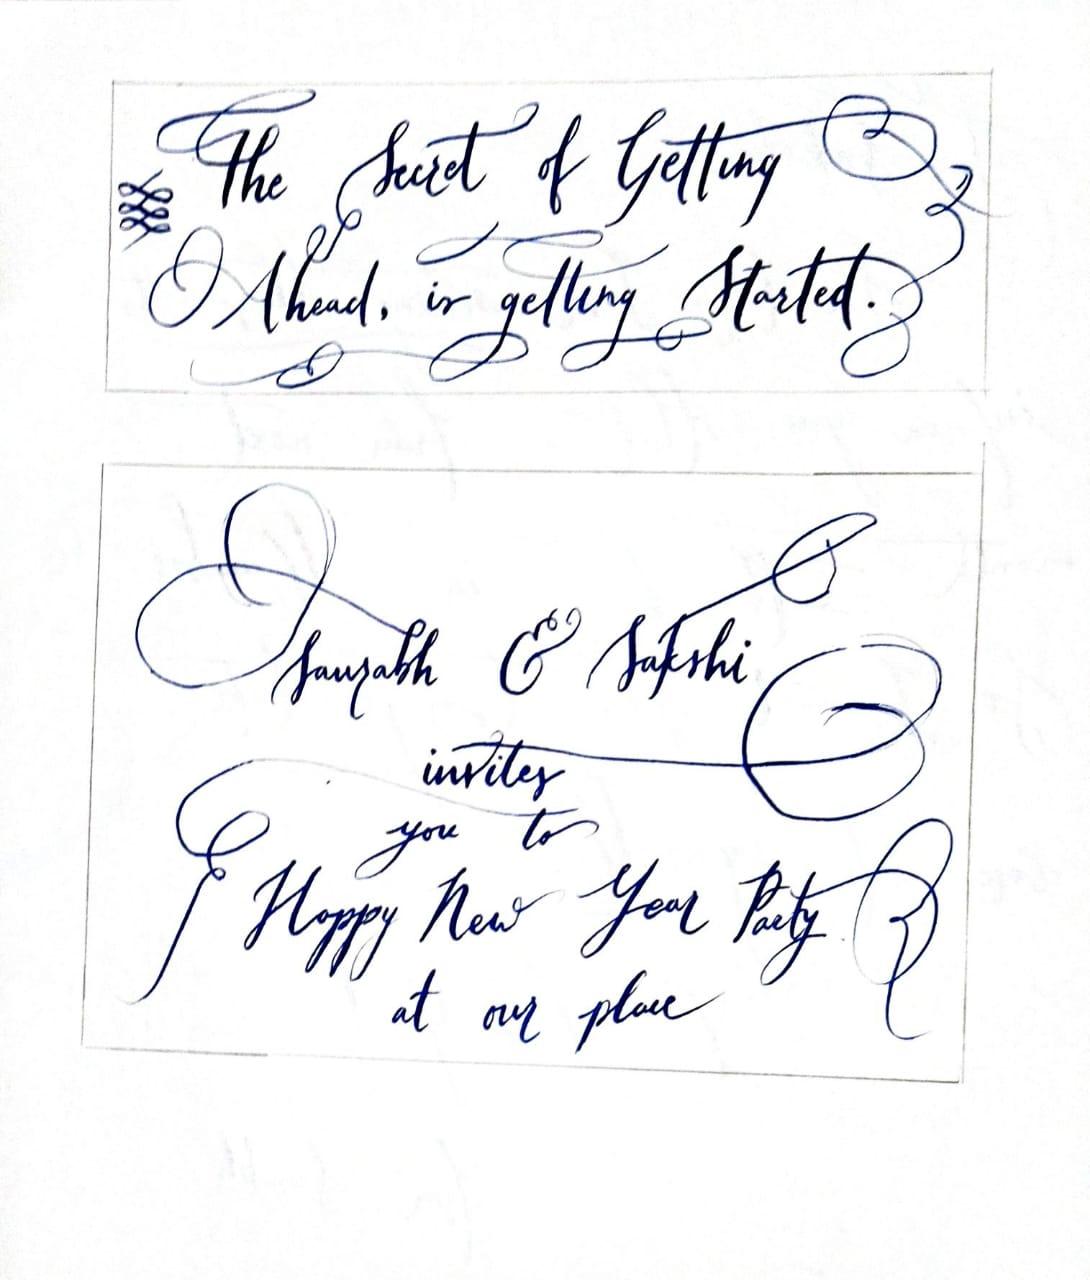 The Secret of Getting
Ahead, is getting Started.
Saurabh & Sakshi
invites
you to
Happy New Year Party
at our place